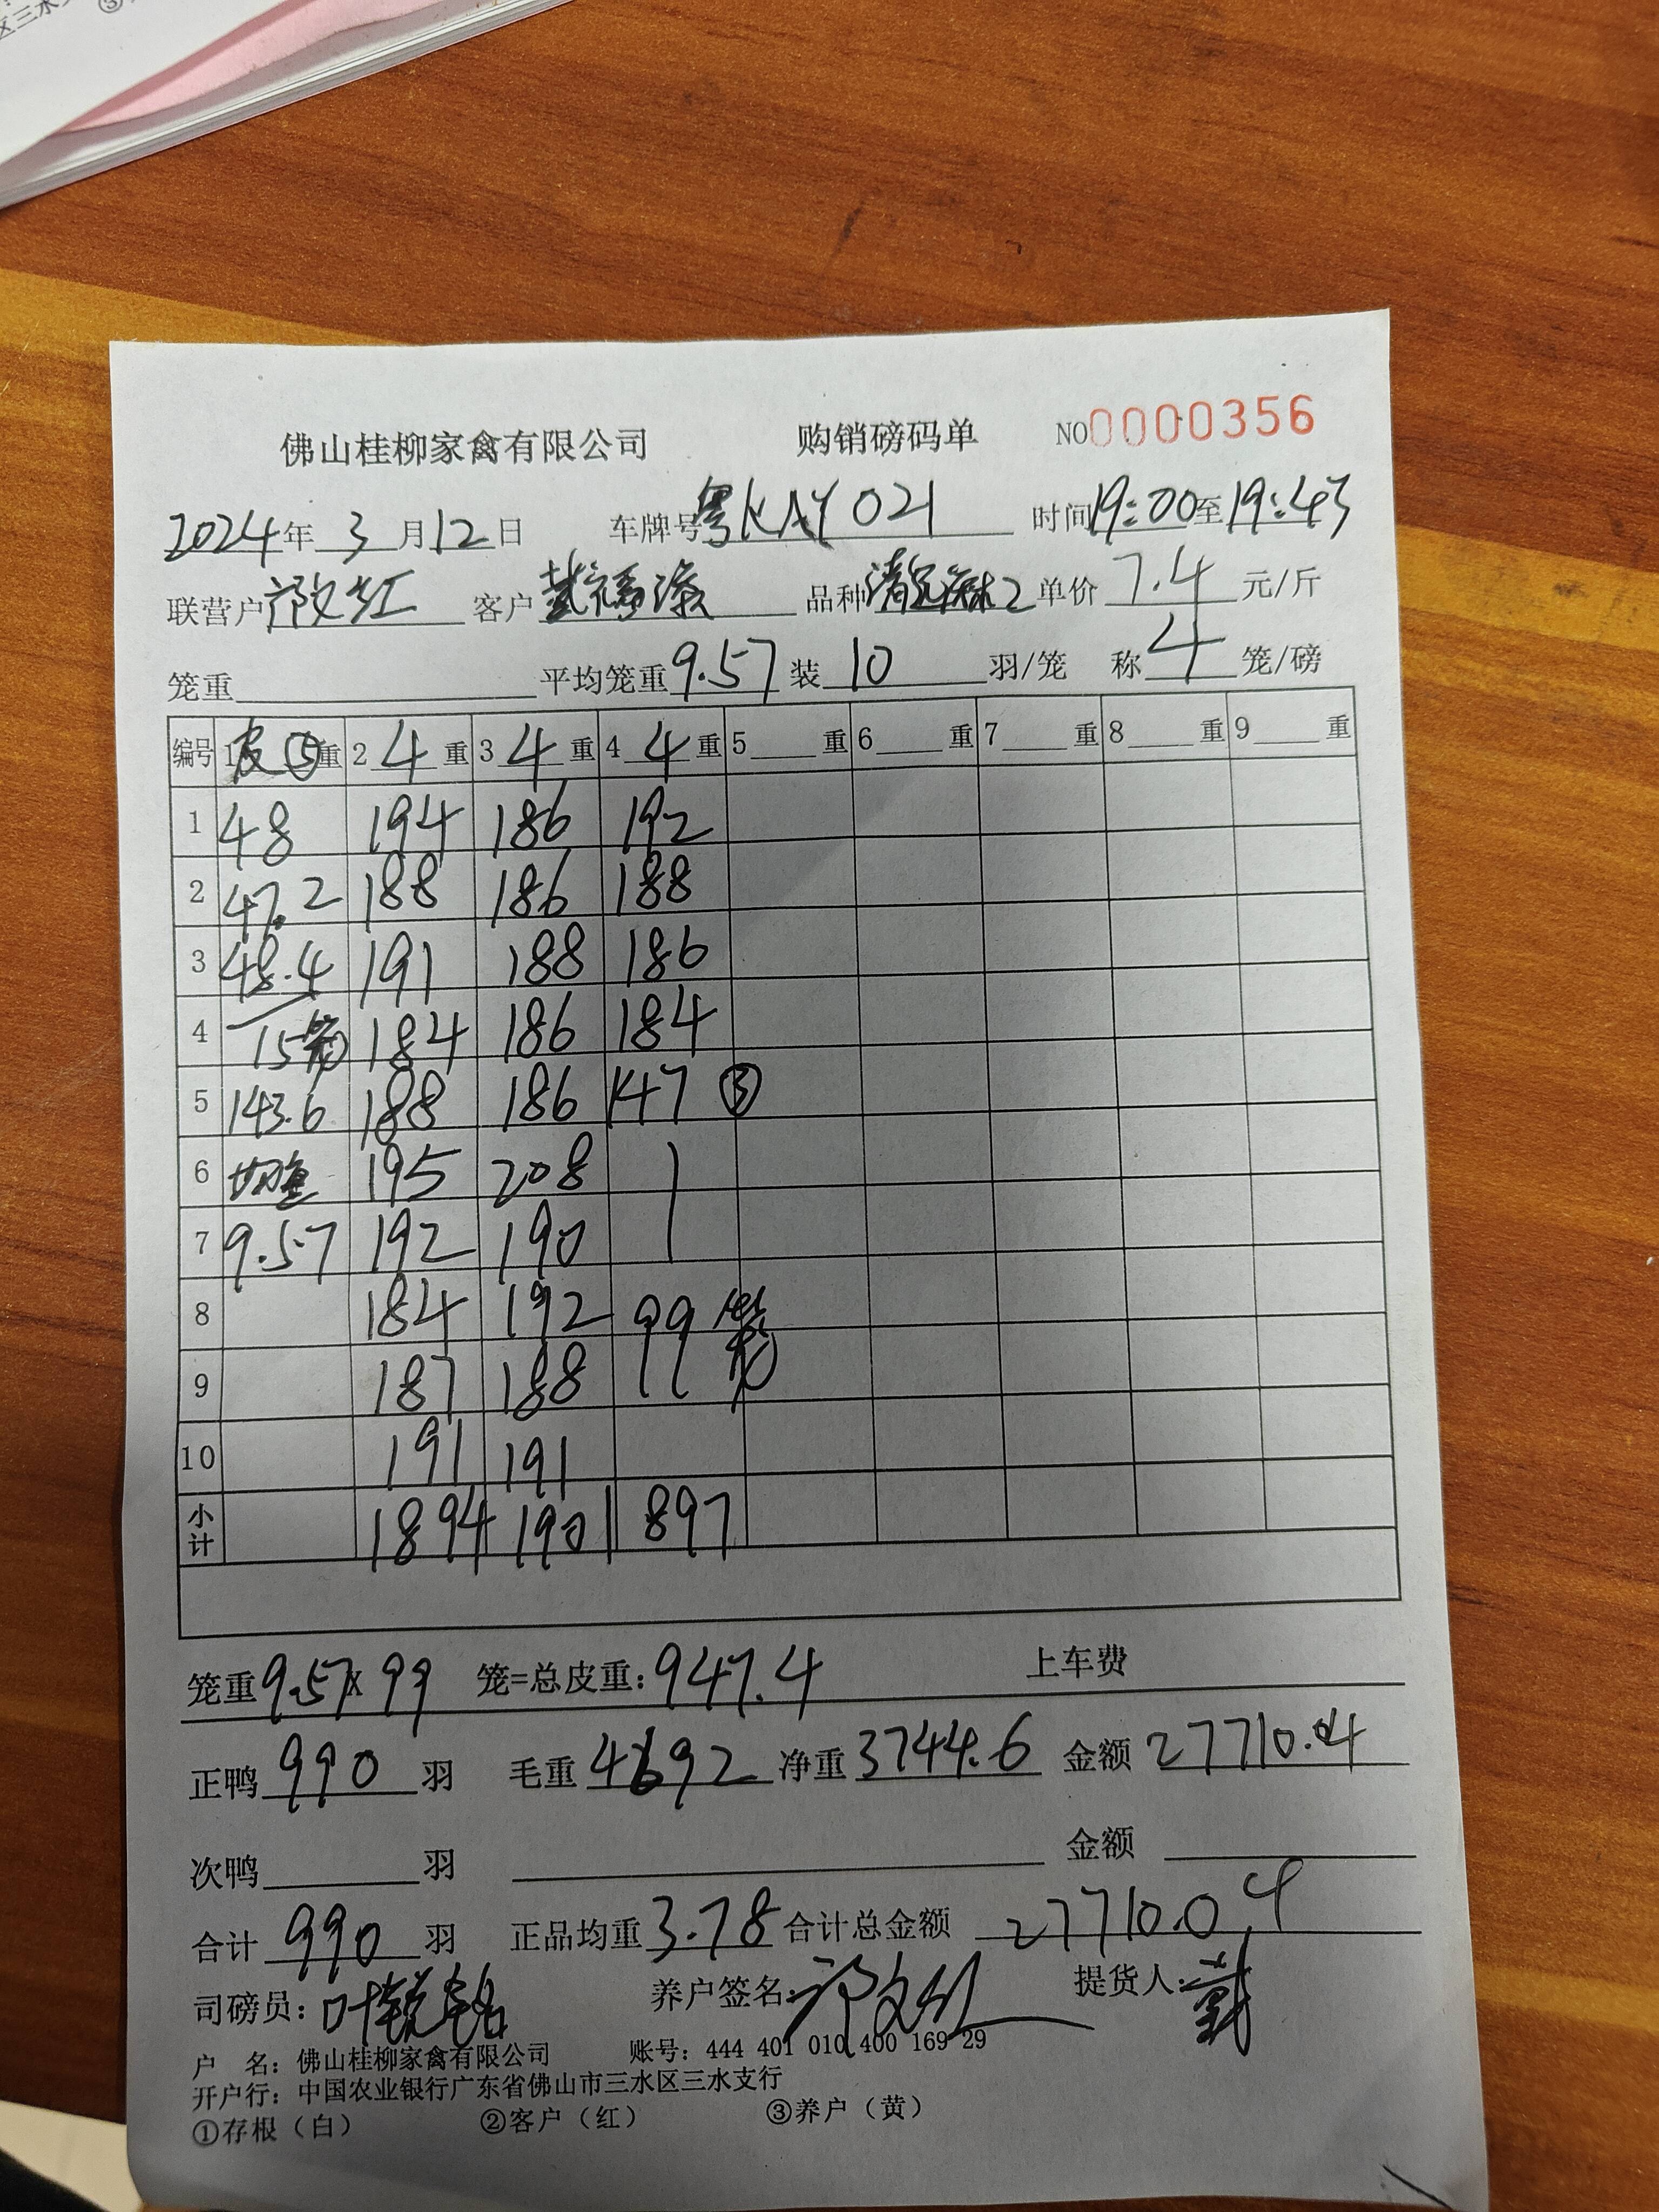 区三水
佛山桂柳家禽有限公司 购销磅码单 NO0000356
2024年 3 月12日 车牌号粤KAY021 时间19:00至19:43
联营户 客户戴 品种清远麻2 单价7.4元/斤
笼重 平均笼重9.57装10羽/笼 称4笼/磅
编号 1皮⑤重 2 4 重 3 4 重 4 4 重 5 重 6 重 7 重 8 重 9 重
1 48 194 186 192
2 47.2 188 186 188
3 48.4 191 188 186
4 15笼 184 186 184
5 143.6 188 186 147 ③
6 均重 195 208
7 9.57 192 190
8 184 192 99笼
9 187 188
10 191 191
小计 1894 1901 897
笼重9.57X99 笼=总皮重:947.4 上车费
正鸭990羽 毛重4692 净重3744.6 金额27710.04
次鸭 羽 金额
合计990羽 正品均重3.78 合计总金额27710.04
司磅员:叶 养户签名: 提货人:戴
户 名: 佛山桂柳家禽有限公司 账号: 444 401 010 400 169 29
开户行: 中国农业银行广东省佛山市三水区三水支行
①存根（白） ②客户（红） ③养户（黄）